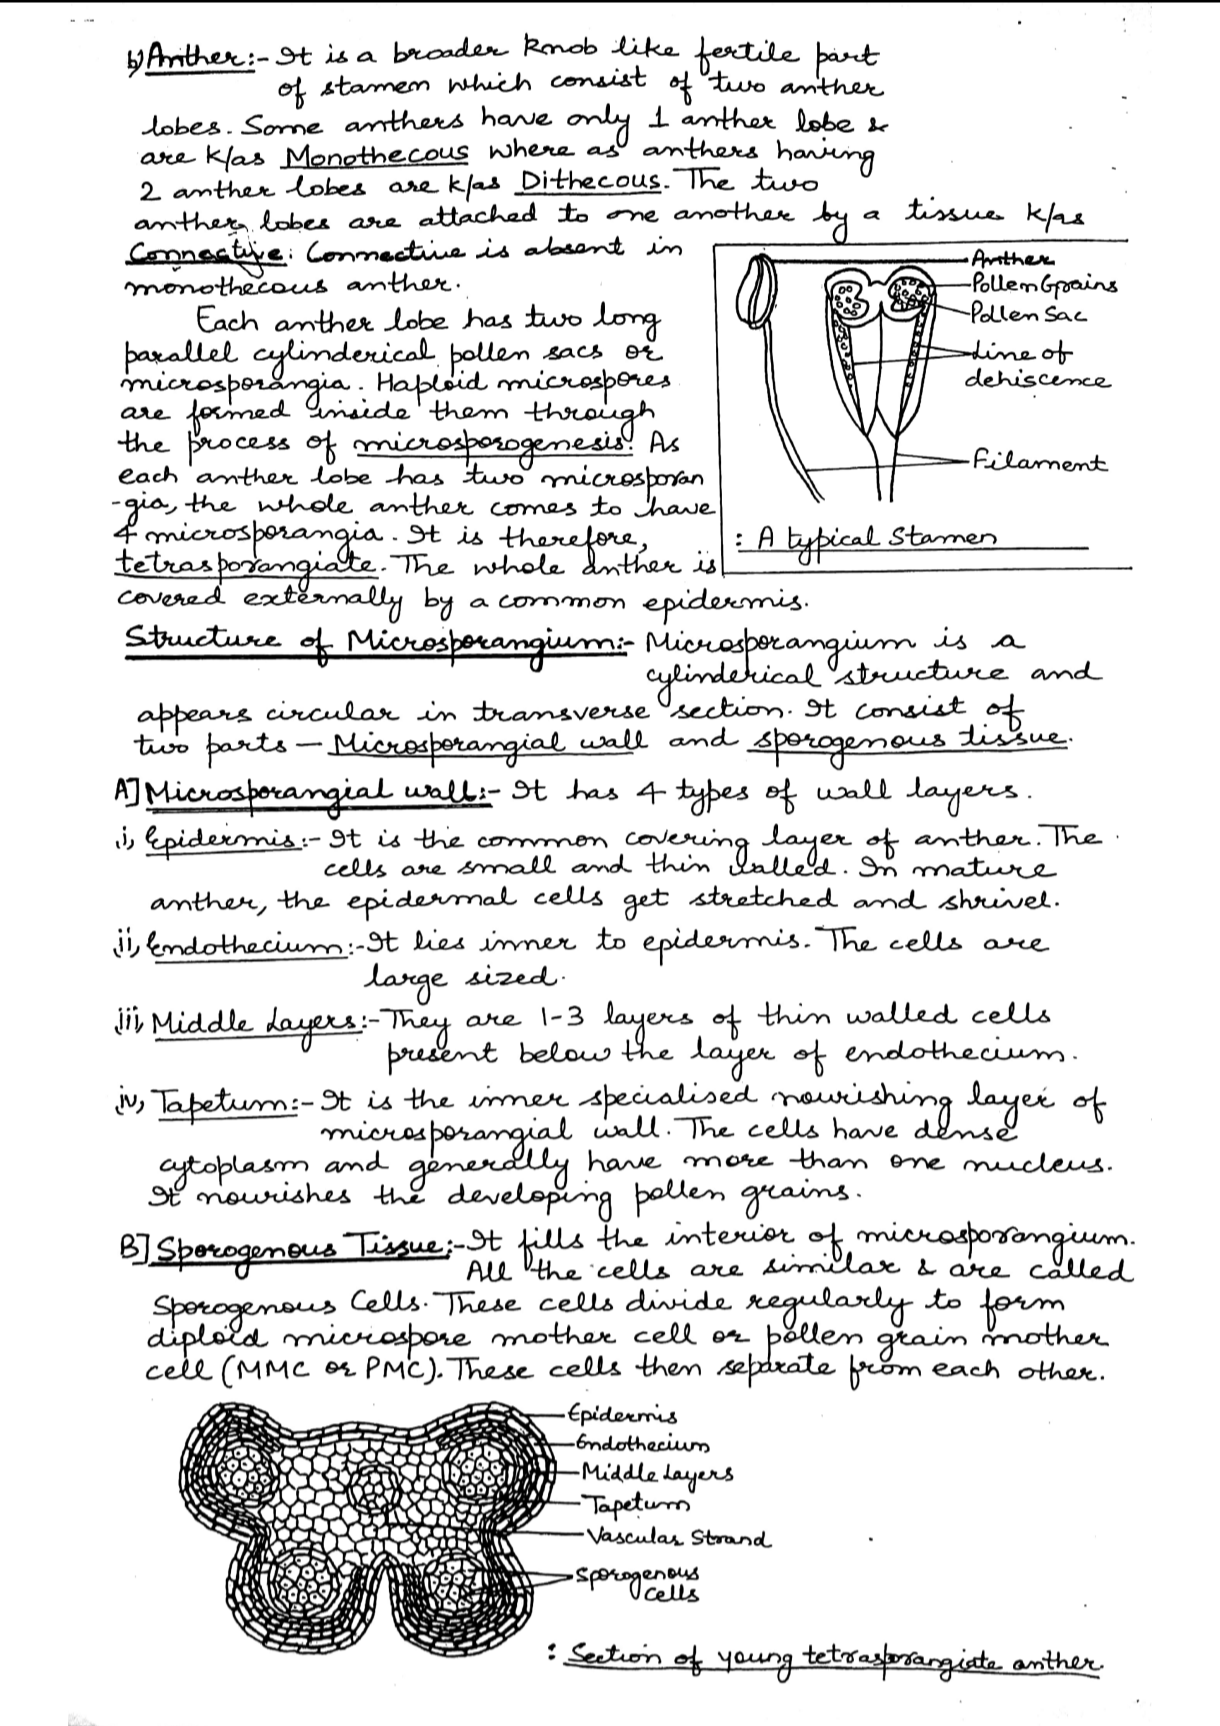 b) Anther:- It is a broader knob like fertile part
of stamen which consist of two anther
lobes. Some anthers have only 1 anther lobe &
are k/as Monothecous where as anthers having
2 anther lobes are k/as Dithecous. The two
anther lobes are attached to one another by a tissue k/as
Connective. Connective is absent in
monothecous anther.
Each anther lobe has two long
parallel cylinderical pollen sacs or
microsporangia. Haploid microspores
are formed inside them through
the process of microsporogenesis. As
each anther lobe has two microsporan
-gia, the whole anther comes to have
4 microsporangia. It is therefore,
tetrasporangiate. The whole anther is
covered externally by a common epidermis.
Anther
Pollen Grains
Pollen Sac
Line of
dehiscence
Filament
: A typical Stamen
Structure of Microsporangium:- Microsporangium is a
cylinderical structure and
appears circular in transverse section. It consist of
two parts – Microsporangial wall and sporogenous tissue.
A] Microsporangial wall:- It has 4 types of wall layers.
i) Epidermis:- It is the common covering layer of anther. The
cells are small and thin walled. In mature
anther, the epidermal cells get stretched and shrivel.
ii) Endothecium:- It lies inner to epidermis. The cells are
large sized.
iii) Middle Layers:- They are 1-3 layers of thin walled cells
present below the layer of endothecium.
iv) Tapetum:- It is the inner specialised nourishing layer of
microsporangial wall. The cells have dense
cytoplasm and generally have more than one nucleus.
It nourishes the developing pollen grains.
B] Sporogenous Tissue:- It fills the interior of microsporangium.
All the cells are similar & are called
Sporogenous Cells. These cells divide regularly to form
diploid microspore mother cell or pollen grain mother
cell (MMC or PMC). These cells then separate from each other.
Epidermis
Endothecium
Middle Layers
Tapetum
Vascular Strand
Sporogenous
cells
: Section of young tetrasporangiate anther.